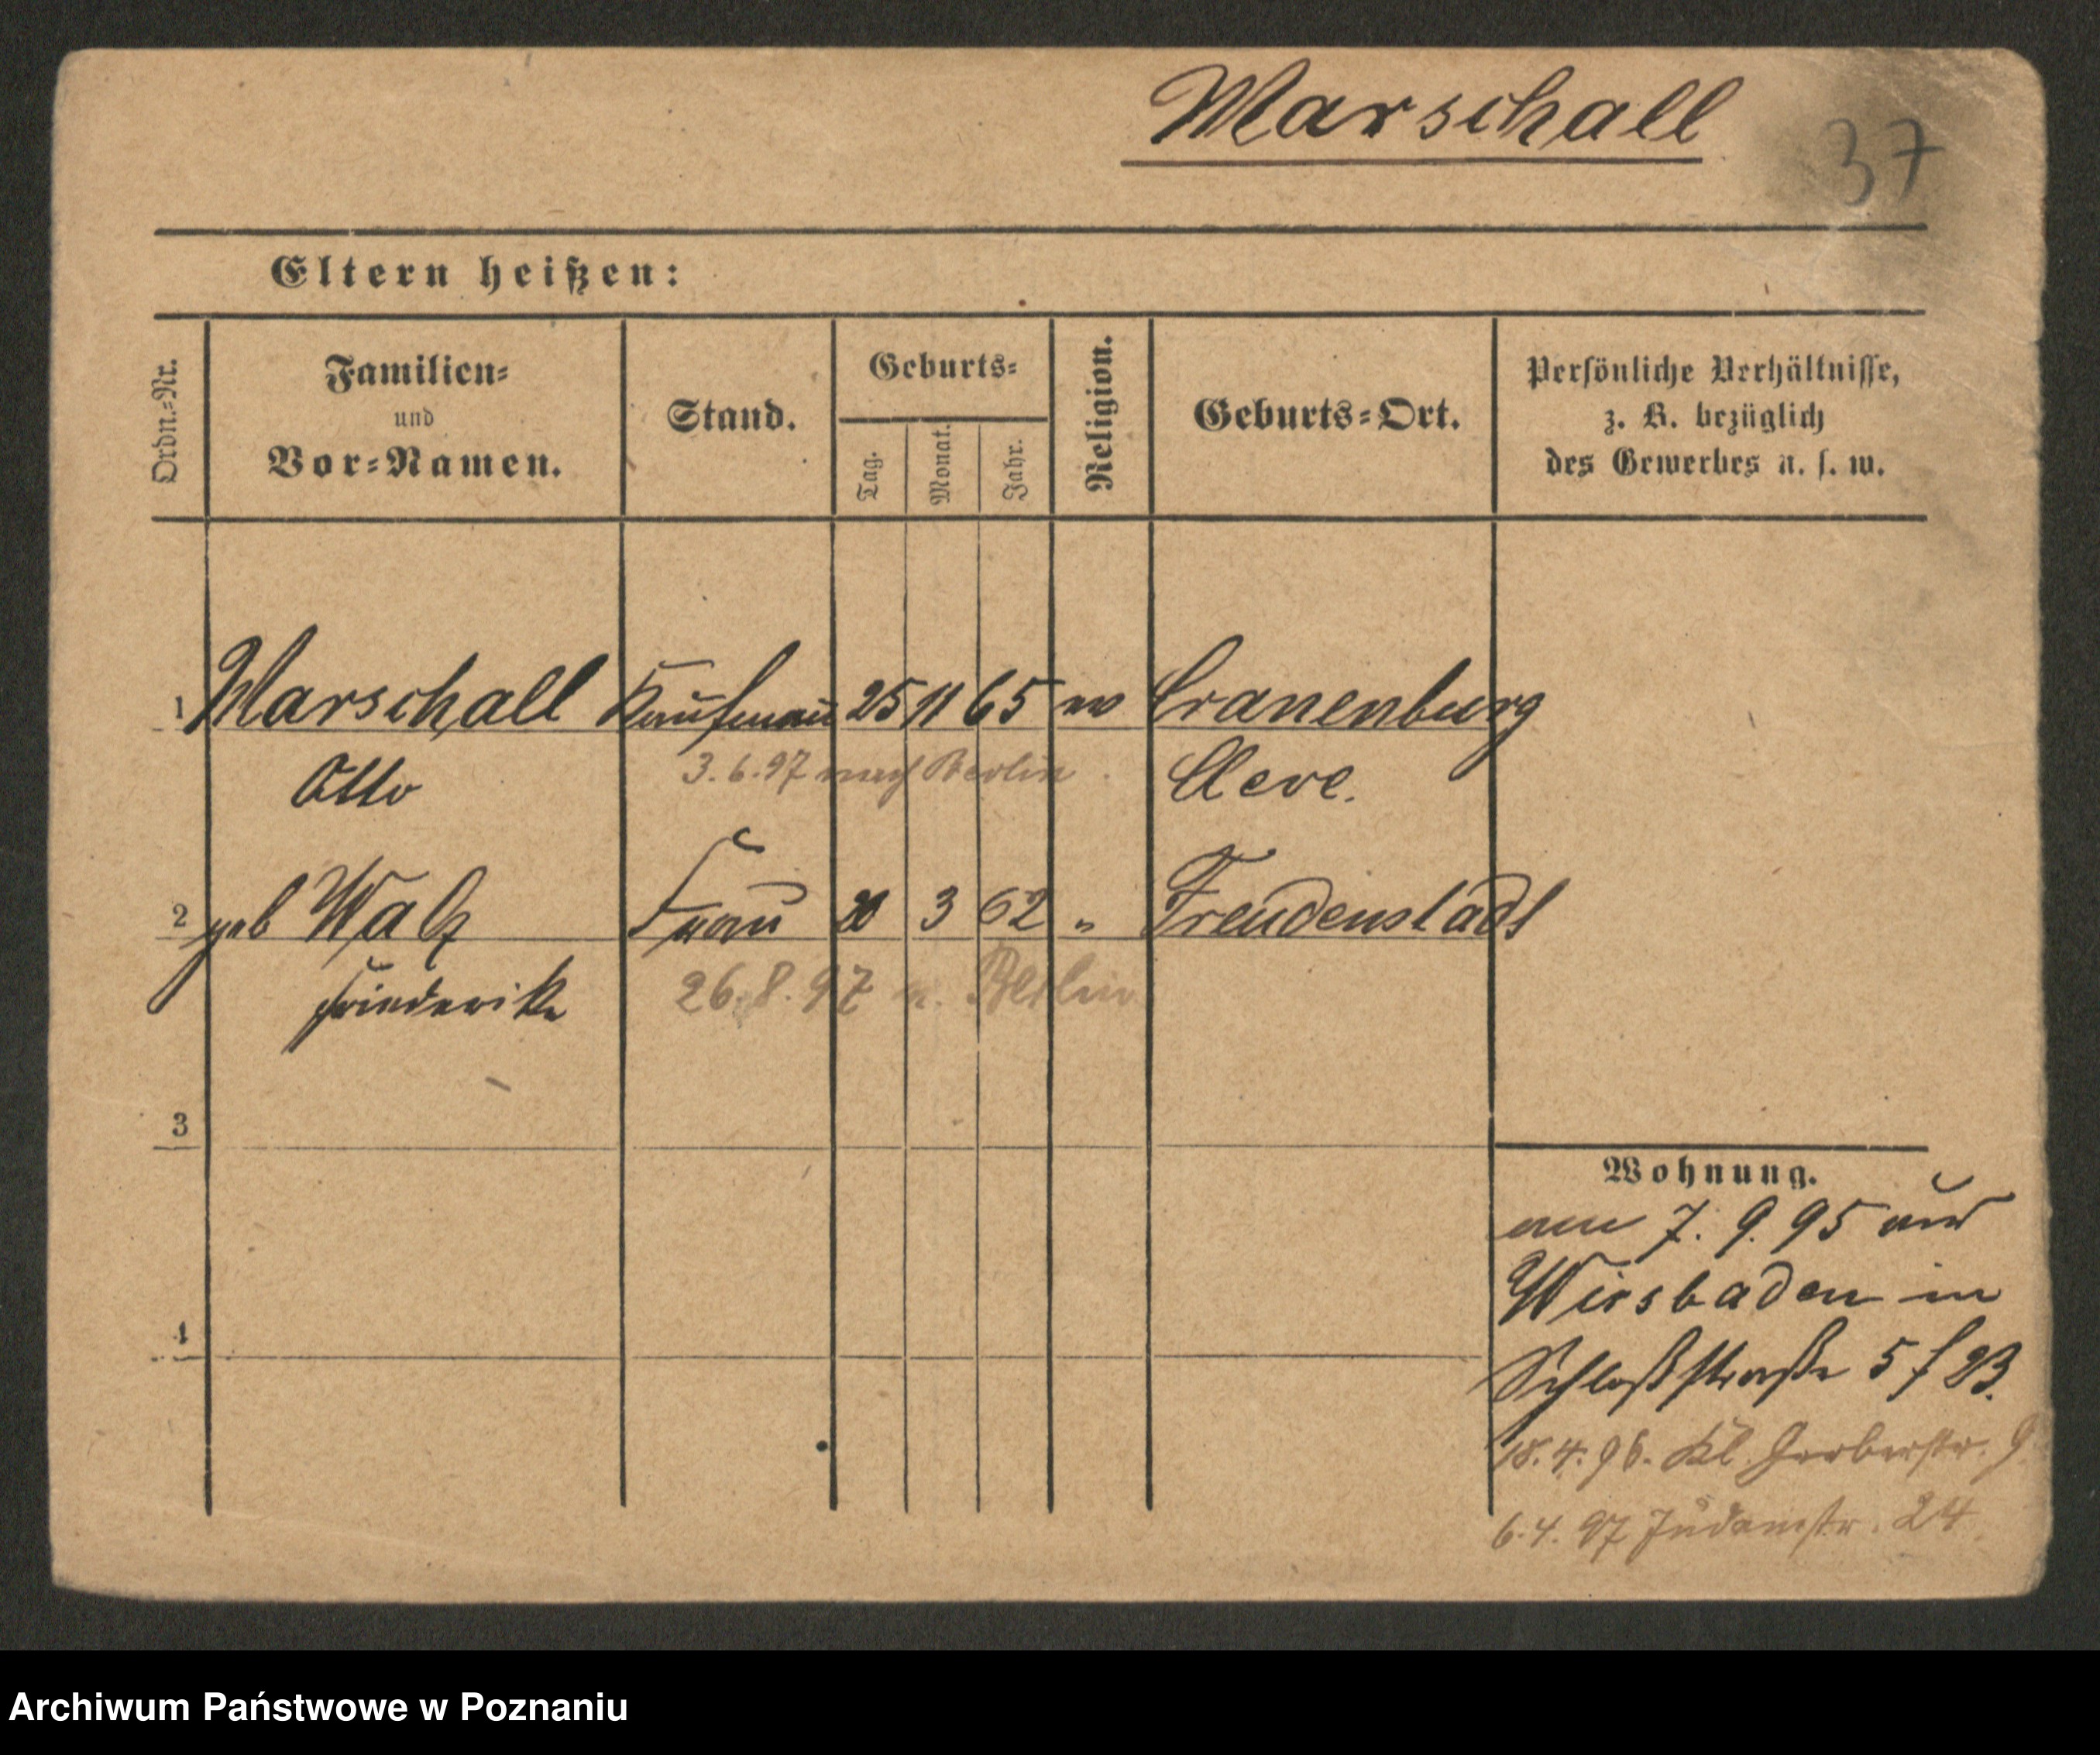 Marschall
37
Eltern heißen:
Ordn.-Nr.
Familien-
und
Vor-Namen.
Stand.
Geburts-
Tag.
Monat.
Jahr.
Religion.
Geburts-Ort.
Persönliche Verhältnisse,
z. B. bezüglich
des Gewerbes u. s. w.
1 Marschall Kaufmann 25 11 65 Cranenburg
Otto 3.6.97 nach Berlin Cleve.
2 geb Walz Frau 3 62 " Freudenstadt
Friederike 26.8.97 n. Berlin
3
4
Wohnung.
am 7.9.95 aus
Wiesbaden in
Schloßstraße 5 f
18.4.96. Kl. Gerberstr. 9
6.4.97 Judenstr. 24
Archiwum Państwowe w Poznaniu